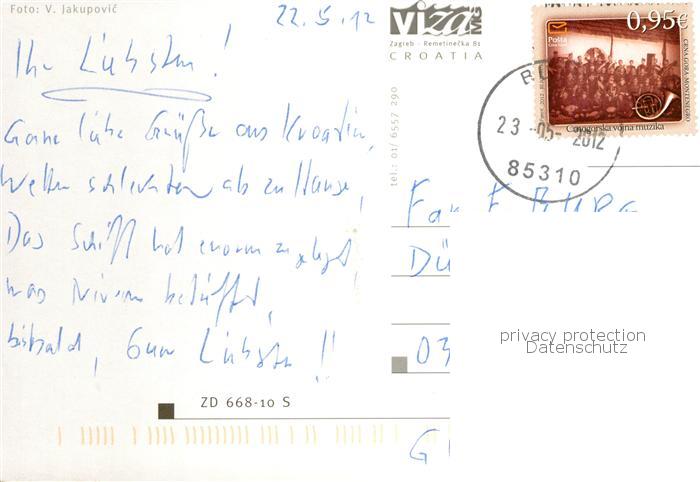 Foto: V. Jakupovič
22.5.12
Ihr Liebsten!
Ganz liebe Grüße aus Kroatien,
Wetter schlechter als zu Hause,
Das Schiff hat enorm zugelegt
was Niveau betrifft,
bis bald, Eure Liebsten!!
ZD 668-10 S
viza MG
Zagreb - Remetinečka 81
CROATIA
tel.: 01/ 6557 290
0,95€
Pošta
CRNA GORA MONTENEGRO
Crnogorska vojna muzika
23 -05- 2012
85310
Fam. E. BURG
DÜ
03
G
privacy protection
Datenschutz